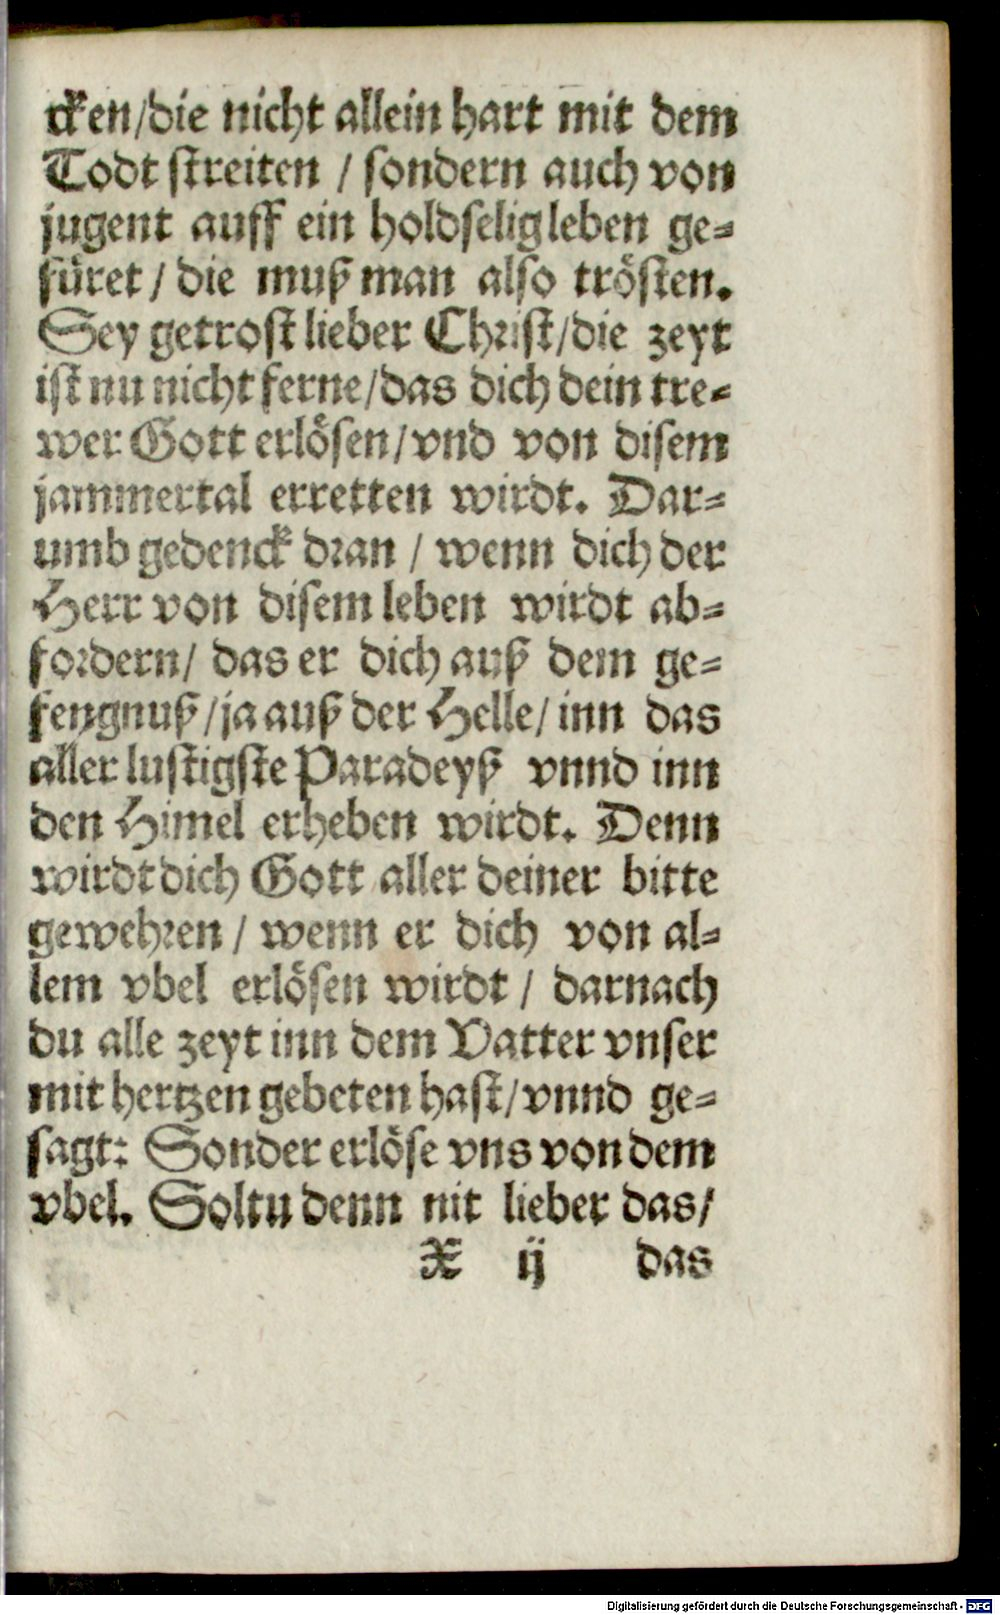 cken/die nicht allein hart mit dem
Todt streiten / sondern auch von
jugent auff ein holdselig leben ge=
füret / die muß man also trösten.
Sey getrost lieber Christ/die zeyt
ist nu nicht ferne/das dich dein tre=
wer Gott erlösen/vnd von disem
jammertal erretten wirdt. Dar=
umb gedenck dran / wenn dich der
Herr von disem leben wirdt ab=
fordern/ das er dich auß dem ge=
fengnuß/ja auß der Helle/inn das
aller lustigste Paradeyß vnnd inn
den Himel erheben wirdt. Denn
wirdt dich Gott aller deiner bitte
gewehren / wenn er dich von al=
lem vbel erlösen wirdt / darnach
du alle zeyt inn dem Vatter vnser
mit hertzen gebeten hast/vnnd ge=
sagt: Sonder erlöse vns von dem
vbel. Soltu denn nit lieber das/
X ij das
Digitalisierung gefördert durch die Deutsche Forschungsgemeinschaft - DFG